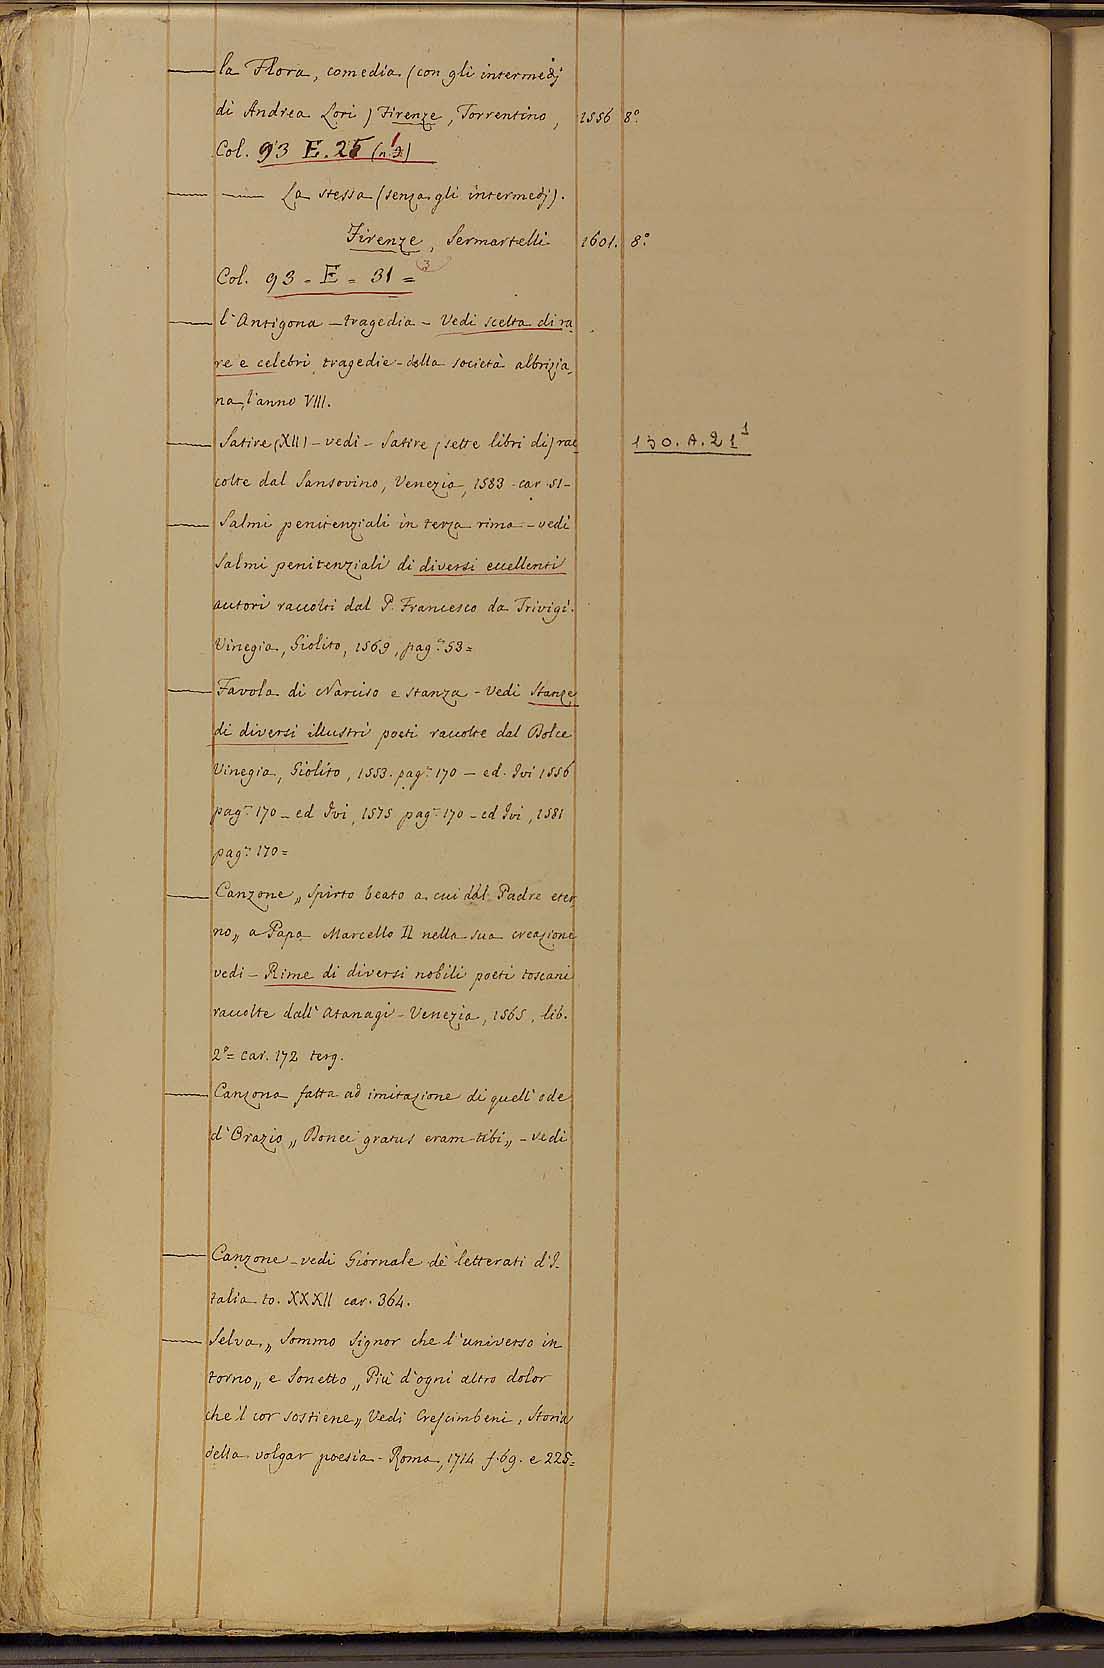 la Flora, comedia (con gli intermedj
di Andrea Lori) Firenze, Torrentino, 1556 8º
Col. 93 E. 25 (n. 1)
La stessa (senza gli intermedj).
Firenze, Sermartelli 1601. 8º
3
Col. 93 = E = 31 =
l'Antigona – tragedia – Vedi scelta di ra
re e celebri tragedie – della società albrizia,
na, l'anno VIII.
Satire (XII) – vedi – Satire (sette libri di) rac 130. A. 21 1
colte dal Sansovino, Venezia, 1583 – car. 51 –
Salmi penitenziali in terza rima – vedi
Salmi penitenziali di diversi eccellenti
autori raccolti dal P. Francesco da Trivigi.
Vinegia, Giolito, 1569, pag.ª 53 =
Favola di Narciso e stanza – Vedi Stanze
di diversi illustri poeti raccolte dal Dolce
Vinegia, Giolito, 1553. pag.ª 170 – ed. Ivi 1556
pag.ª 170 – ed Ivi, 1575 pag.ª 170 – ed Ivi, 1581
pag.ª 170 =
Canzone „ Spirto beato a cui dal Padre eter
no „ a Papa Marcello II nella sua creazione
vedi – Rime di diversi nobili poeti toscani
raccolte dall' Atanagi – Venezia, 1565, lib.
2º = car. 172 terg.
Canzona fatta ad imitazione di quell'ode
d'Orazio „ Donec gratus eram tibi „ – vedi
Canzone – vedi Giornale de' letterati d'I
talia to. XXXII car. 364.
Selva „ Sommo Signor che l'universo in
torno „ e Sonetto „ Più d'ogni altro dolor
che 'l cor sostiene „ Vedi Crescimbeni, Storia
della volgar poesia – Roma, 1714 f. 69. e 225 =